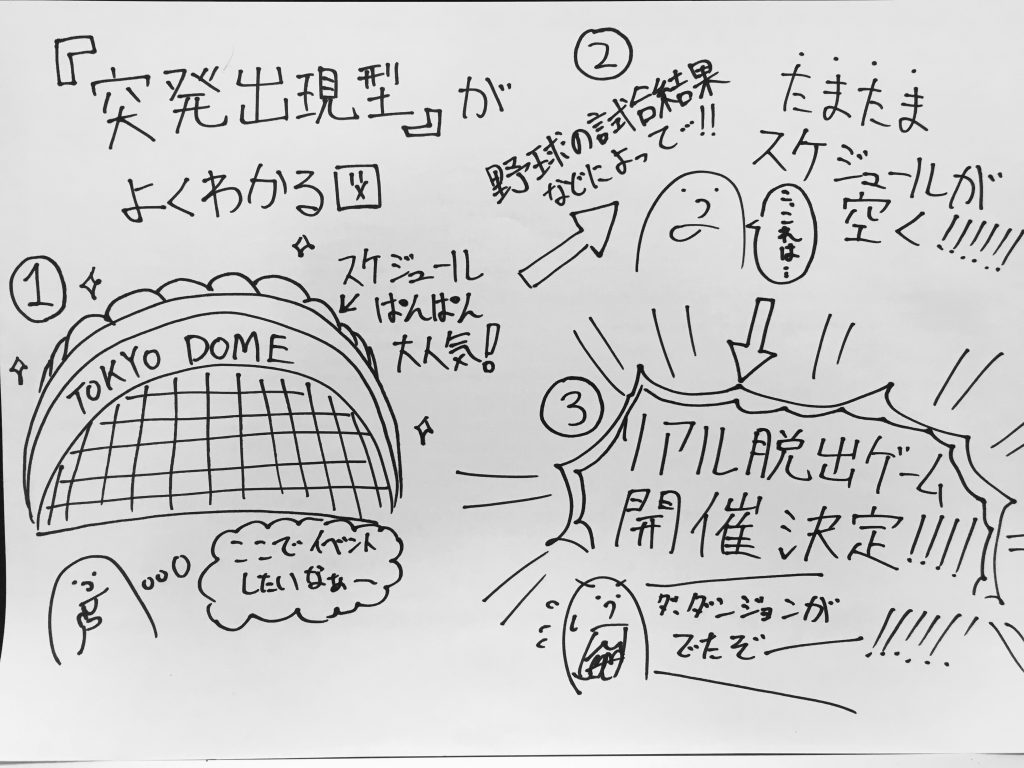 『突発出現型』が
よくわかる図
①
TOKYO DOME
スケジュール
ぱんぱん
大人気!
ここでイベント
したいなぁー
②
野球の試合結果
などによって…!!
たまたま
スケジュールが
空く!!!!!!
こっこれは…
③
リアル脱出ゲーム
開催決定!!!!!
ダ、ダンジョンが
でたぞー!!!!!!